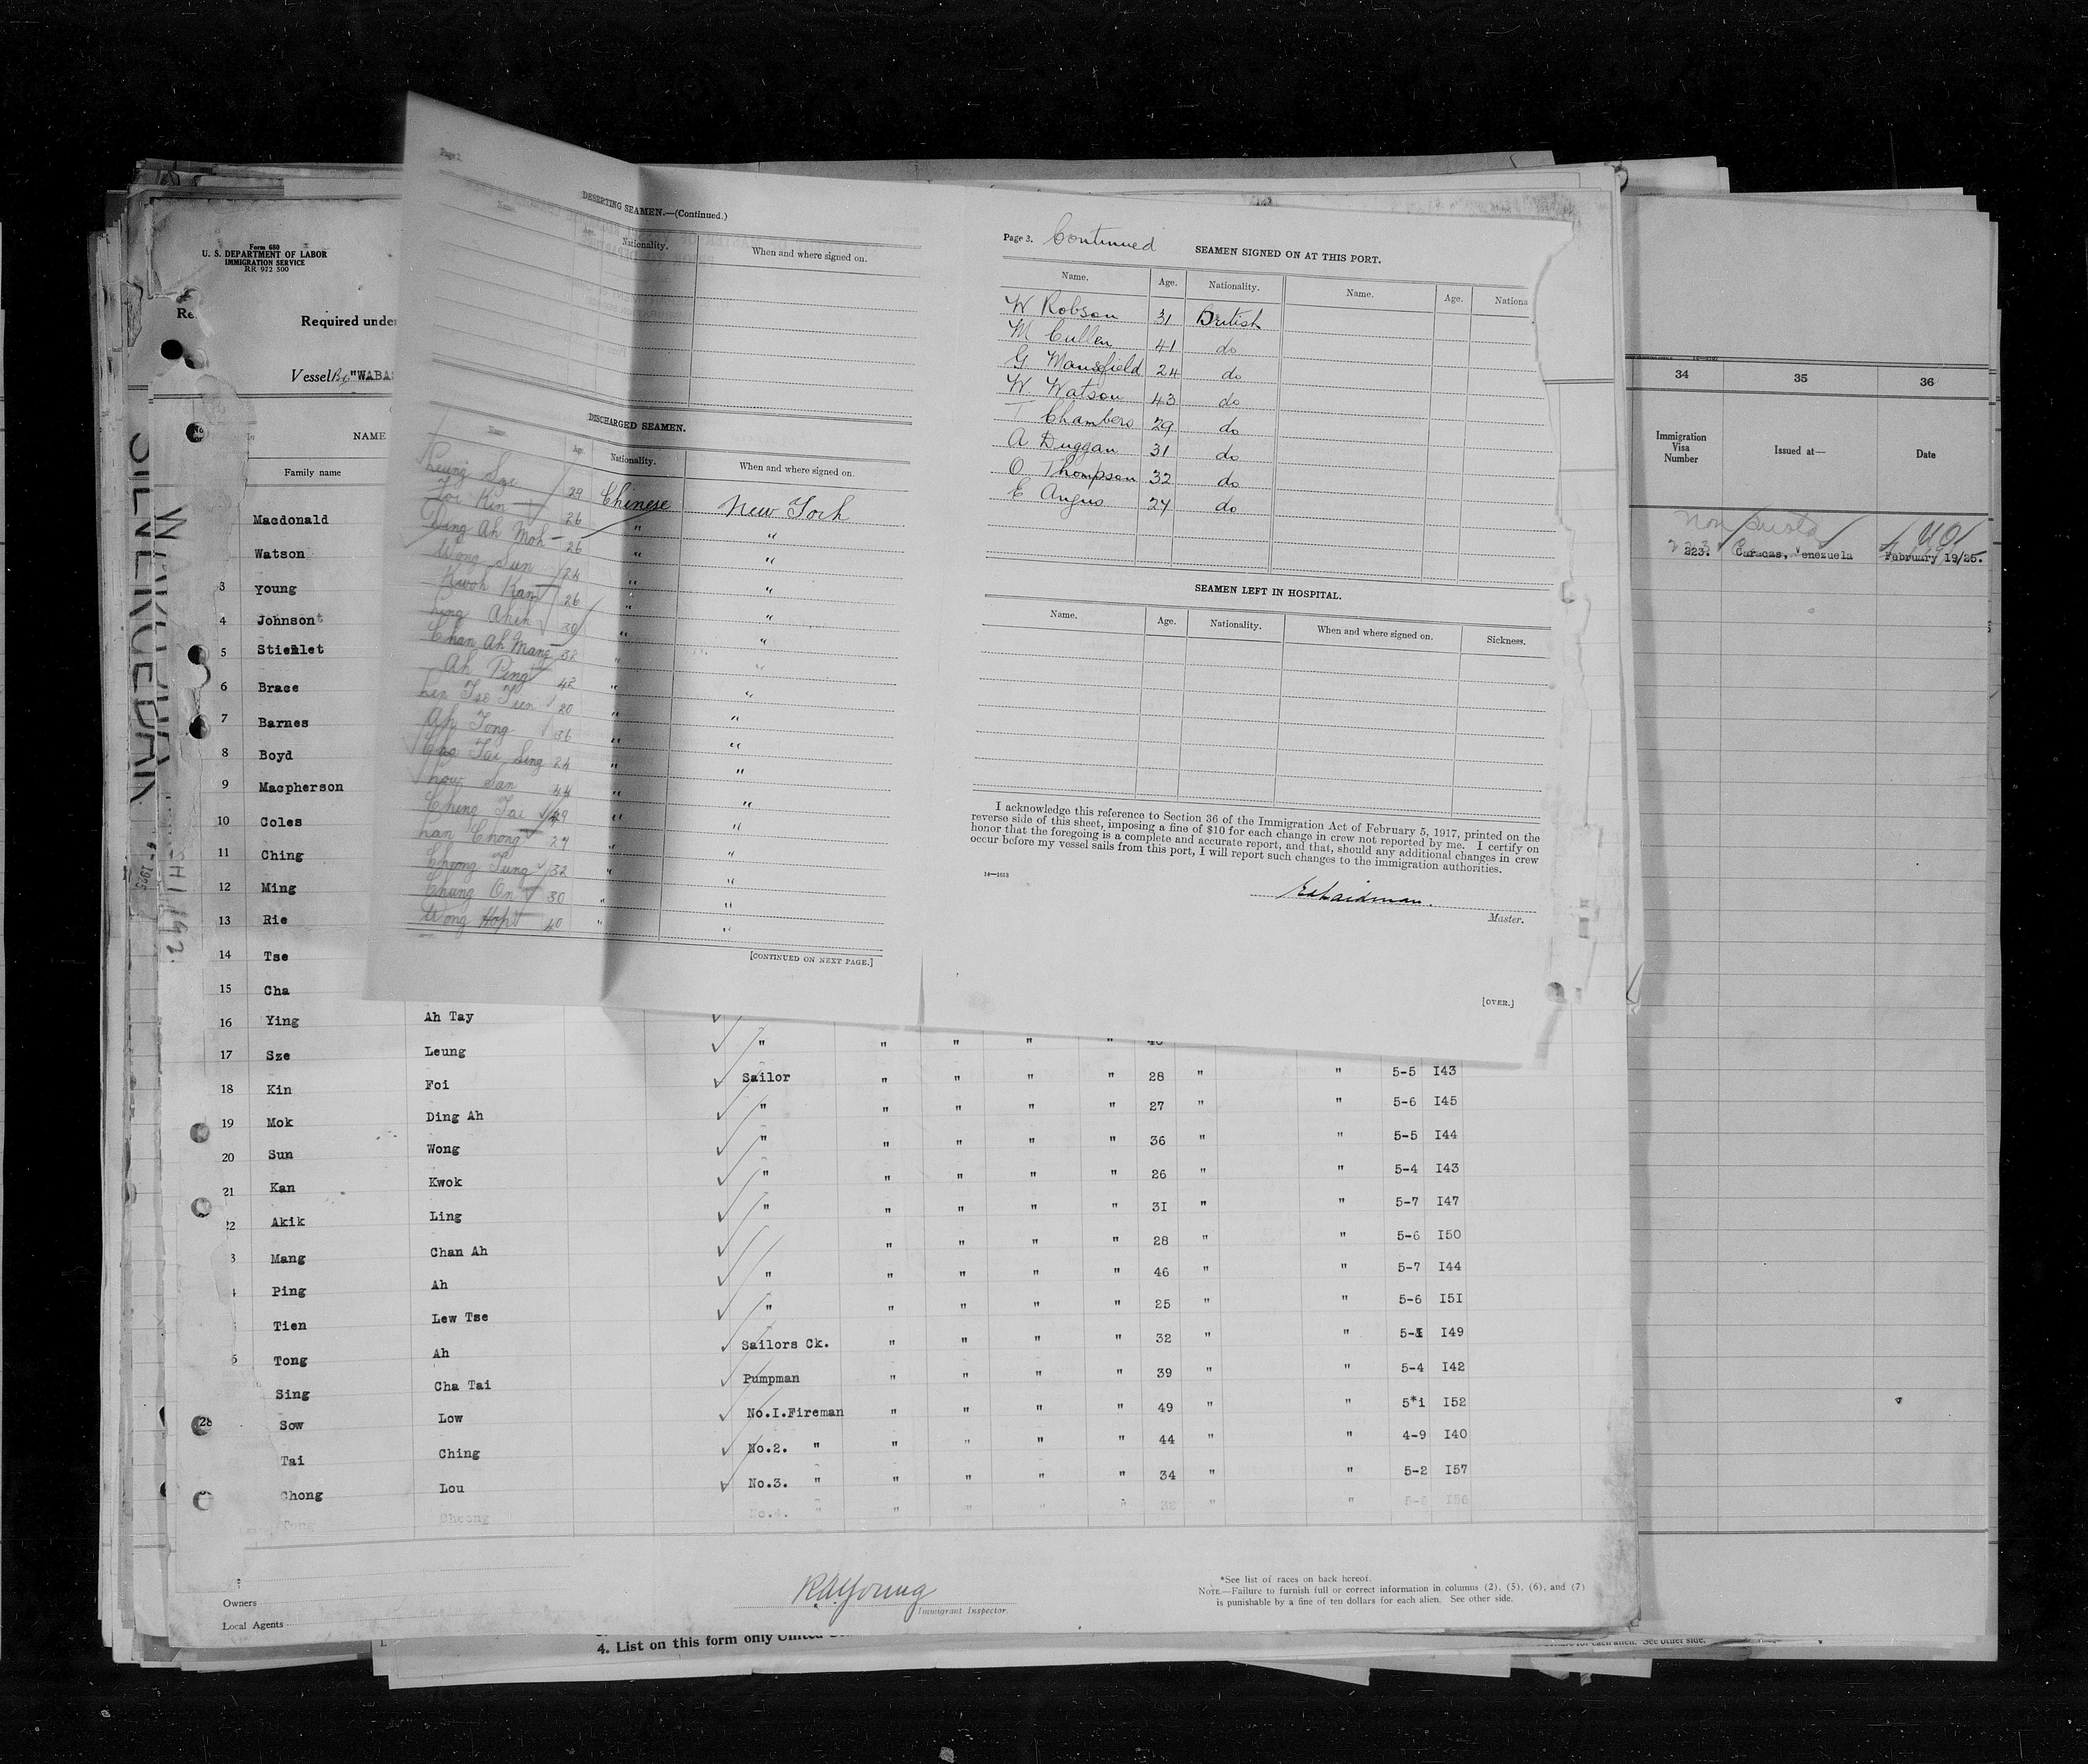 Form 680
U. S. DEPARTMENT OF LABOR
IMMIGRATION SERVICE
RR 972 500
Required unde
Vessel "WABA
NAME
Family name
Macdonald
Watson
3 young
4 Johnson
5
6 Brace
7 Barnes
8 Boyd
9 Macpherson
10 Coles
11 Ching
12 Ming
13 Rie
14 Tse
15 Cha
Page 2.
DESERTING SEAMEN.—(Continued.)
Name Age. Nationality. When and where signed on.
DISCHARGED SEAMEN.
Name Age. Nationality. When and where signed on.
Leung Sze 29 Chinese New York
Foi Kin 26 " "
Ding Ah Moh 26 " "
Wong Sun 24 " "
Kwok Kan 26 " "
Ling Akik 30 " "
Chan Ah Mang 32 " "
Ah Ping 42 " "
Tse Tien 20 " "
Ah Tong 36 " "
Cha Tai Sing 24 " "
San 44 " "
Ching Tai 49 " "
Chong 27 " "
Cheong Tung 32 " "
Chung On 30 " "
Wong Hop 40 " "
[CONTINUED ON NEXT PAGE.]
Page 3. Continued
SEAMEN SIGNED ON AT THIS PORT.
Name. Age. Nationality. Name. Age. Nationa
W Robson 31 British
M Cullen 41 do
G Mansfield 24 do
W Watson 43 do
T Chambers 29 do
A Duggan 31 do
O Thompson 32 do
E Angus 24 do
SEAMEN LEFT IN HOSPITAL.
Name. Age. Nationality. When and where signed on. Sickness.
I acknowledge this reference to Section 36 of the Immigration Act of February 5, 1917, printed on the
reverse side of this sheet, imposing a fine of $10 for each change in crew not reported by me. I certify on
honor that the foregoing is a complete and accurate report, and that, should any additional changes in crew
occur before my vessel sails from this port, I will report such changes to the immigration authorities.
Master.
[OVER.]
34 35 36
Immigration Visa Number Issued at— Date
223. Caracas, Venezuela February 19/25.
16 Ying Ah Tay
17 Sze Leung " " " " "
18 Kin Foi Sailor " " " " 28 " " 5-5 I43
19 Mok Ding Ah " " " " " 27 " " 5-6 I45
20 Sun Wong " " " " " 36 " " 5-5 I44
21 Kan Kwok " " " " " 26 " " 5-4 I43
22 Akik Ling " " " " " 3I " " 5-7 I47
3 Mang Chan Ah " " " " 28 " " 5-6 I50
Ping Ah " " " " " 46 " " 5-7 I44
Tien Lew Tse " " " " " 25 " " 5-6 I5I
Tong Ah Sailors Ck. " " " " 32 " " I49
Sing Cha Tai Pumpman " " " " 39 " " 5-4 I42
28 Sow Low No.I.Fireman " " " " 49 " " 5*1 I52
Tai Ching No.2. " " " " " 44 " " 4-9 I40
Chong Lou No.3. " " " " " 34 " " 5-2 I57
Tung Cheong No.4. " " " " " " "
Owners
Local Agents
R.A. Young
Immigrant Inspector.
*See list of races on back hereof.
NOTE.—Failure to furnish full or correct information in columns (2), (5), (6), and (7)
is punishable by a fine of ten dollars for each alien. See other side.
4. List on this form only